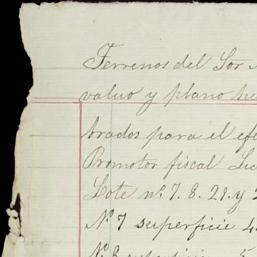 Terrenos del Sor
valuo y plano he
brados para el efe
Promotor fiscal Lic
Lote nº. 7. 8. 21. y 2
Nº 7 superficie 4
Nº 8 superficie 5